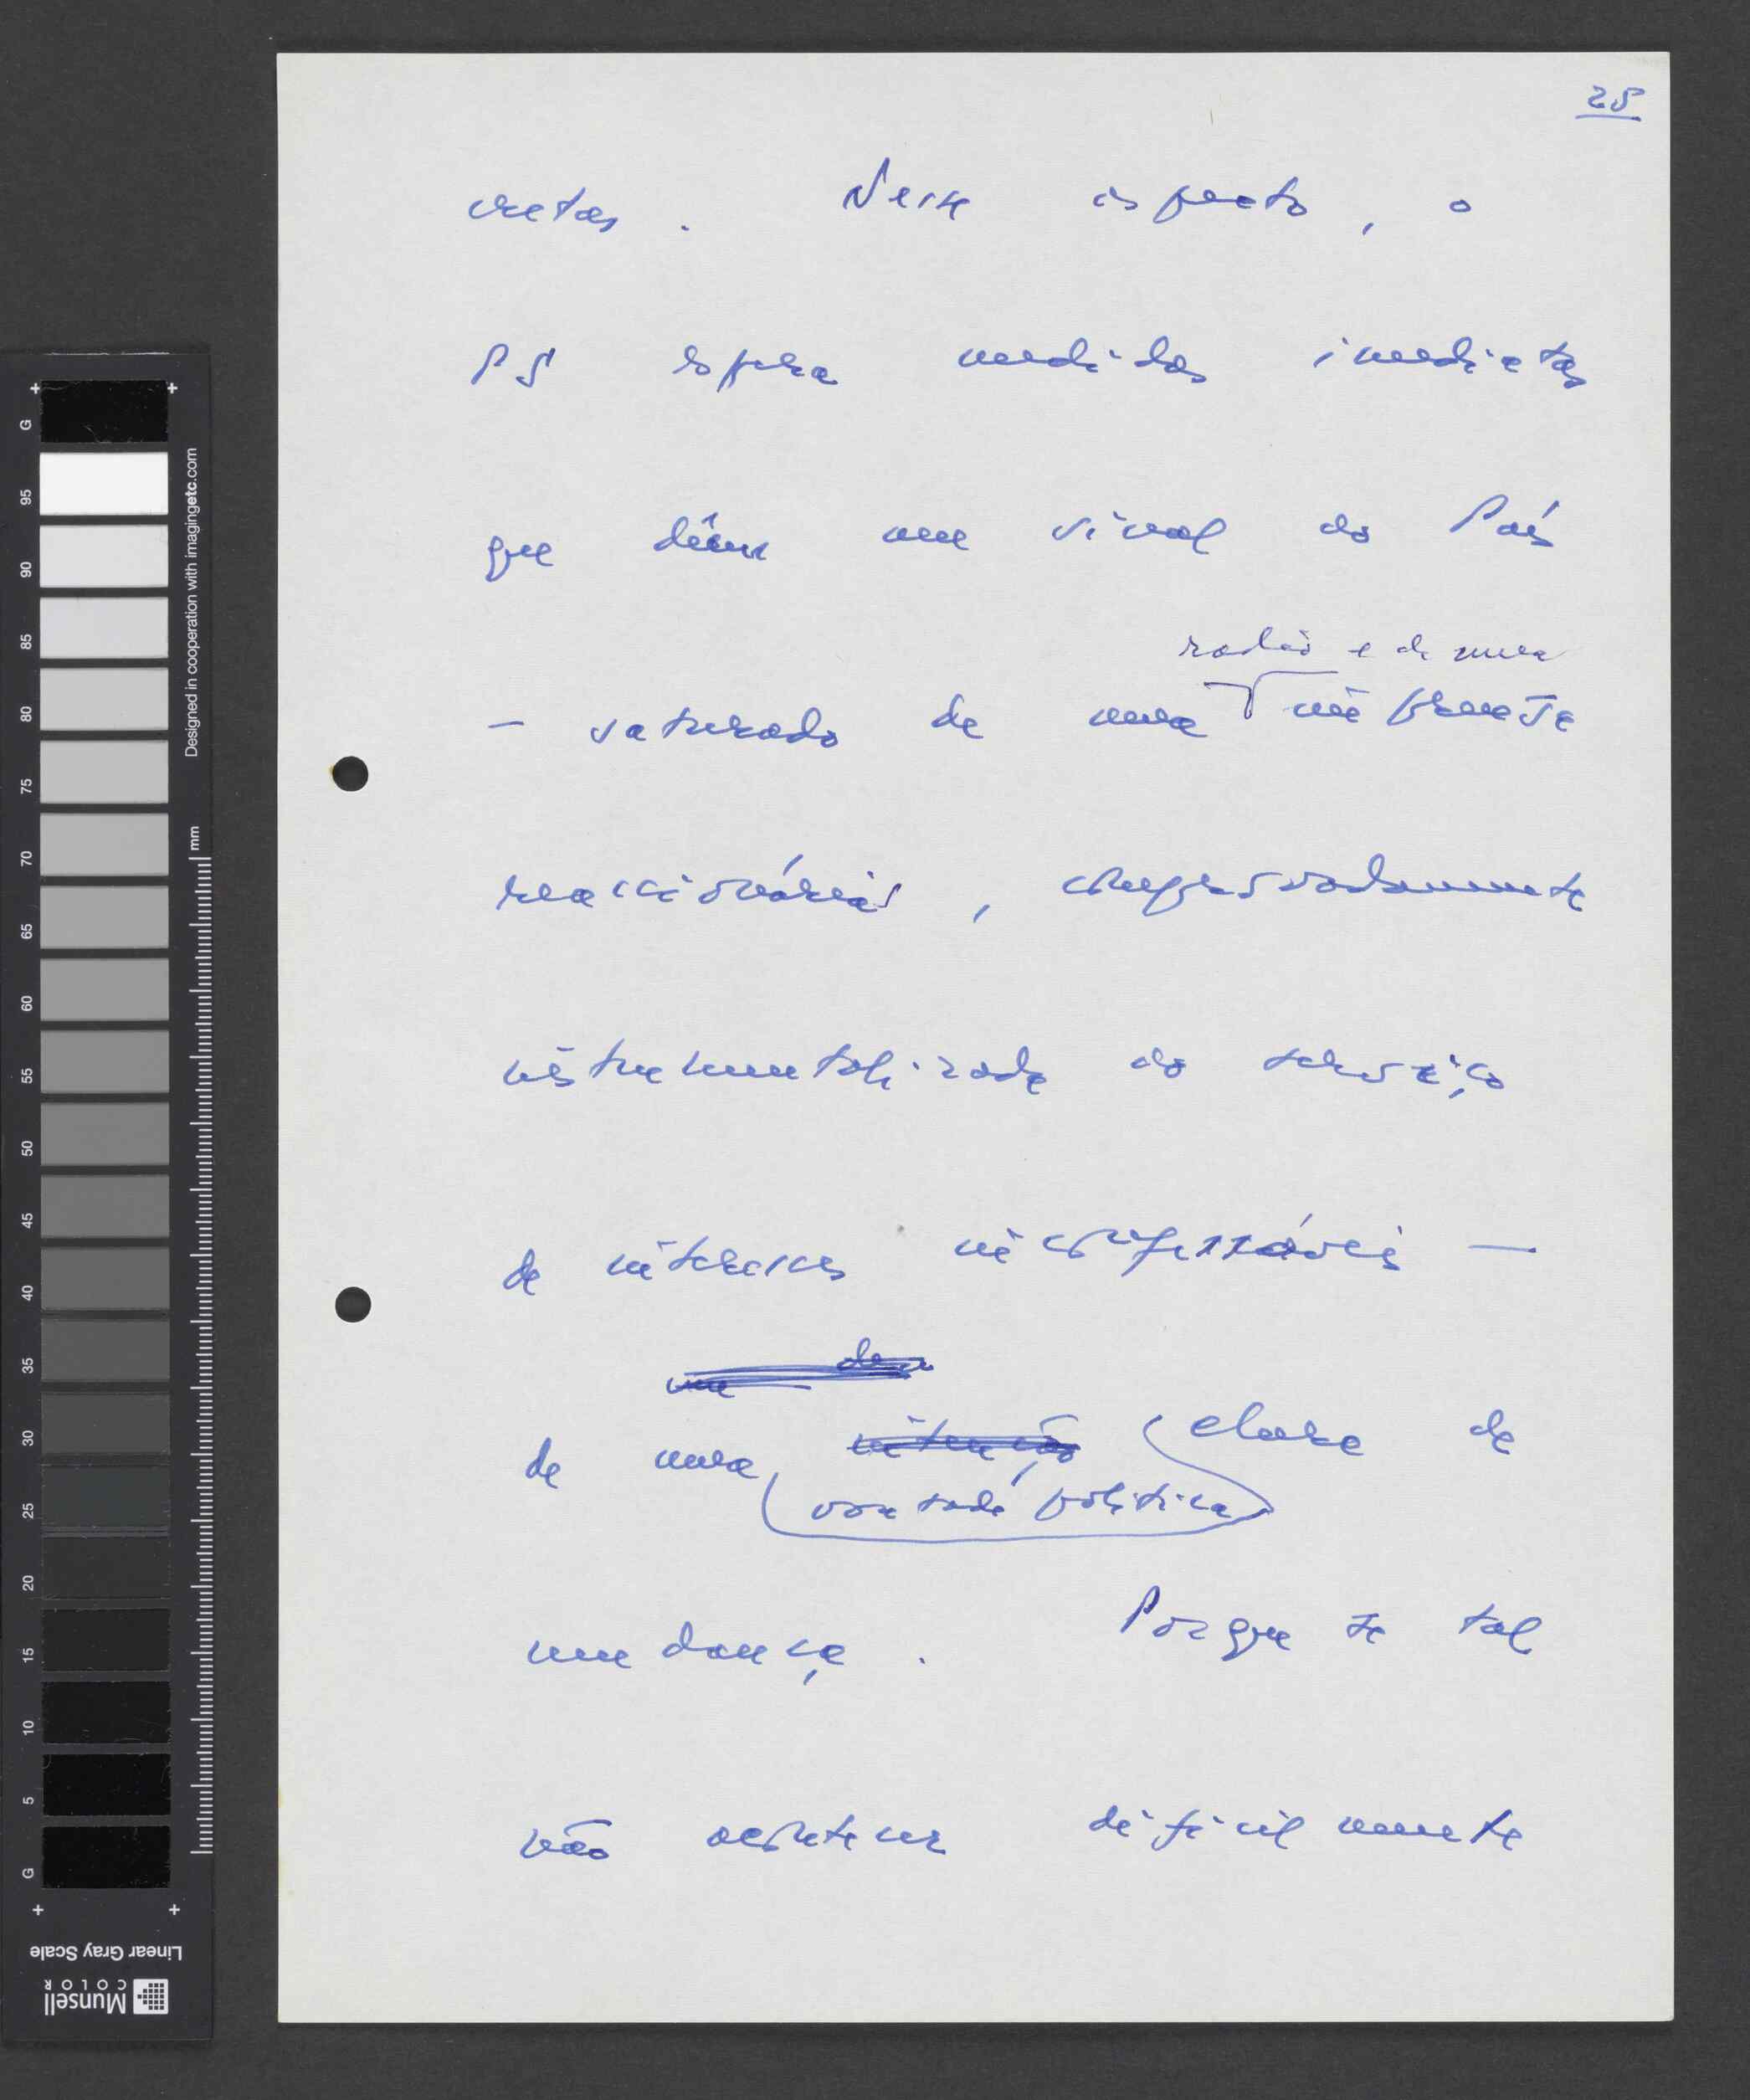 25
cretas. Nesse aspecto, o
PS espera medidas imediatas
que dêem um sinal ao País
rádio e de uma
— saturado de uma imprensa
reaccionárias, comprovadamente
instrumentalizada ao serviço
de interesses inconfessáveis —
de uma intenção clara de
vontade política
mudança. Porque se tal
não acontecer dificilmente
G 95 90 85 80 75 70 65 60 55 50 45 40 35 30 25 20 15 10 5 G
Designed in cooperation with imagingetc.com
mm
Linear Gray Scale
Munsell
COLOR